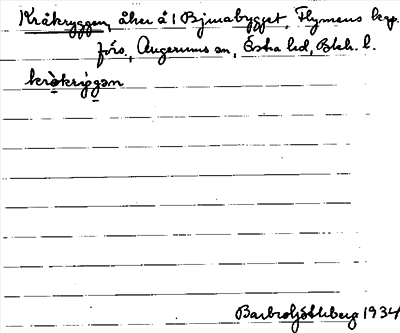 Kråkryggen, åker å 1 Bjurabygget, Flymens kap.
förs., Augerums sn, Östra hd, Blek. l.
kråkrýgən
Barbro Söderberg 1934